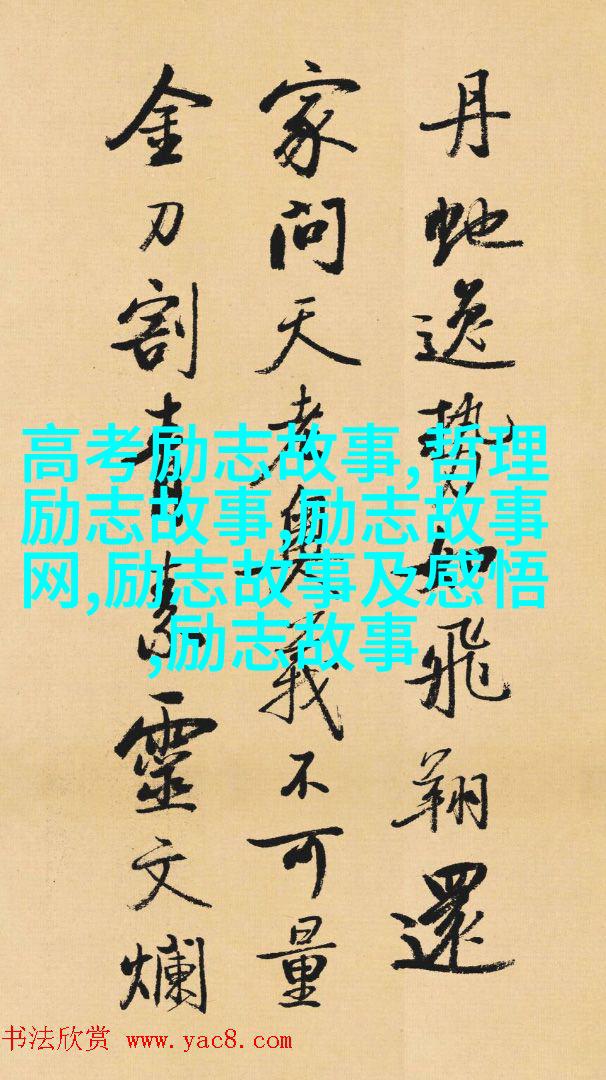 丹虵逸勢如飛翔還
家問天老奧義不可量
金刀割青素靈文爛
高考励志故事,哲理
励志故事,励志故事
网,励志故事及感悟
,励志故事
书法欣赏 www.yac8.com